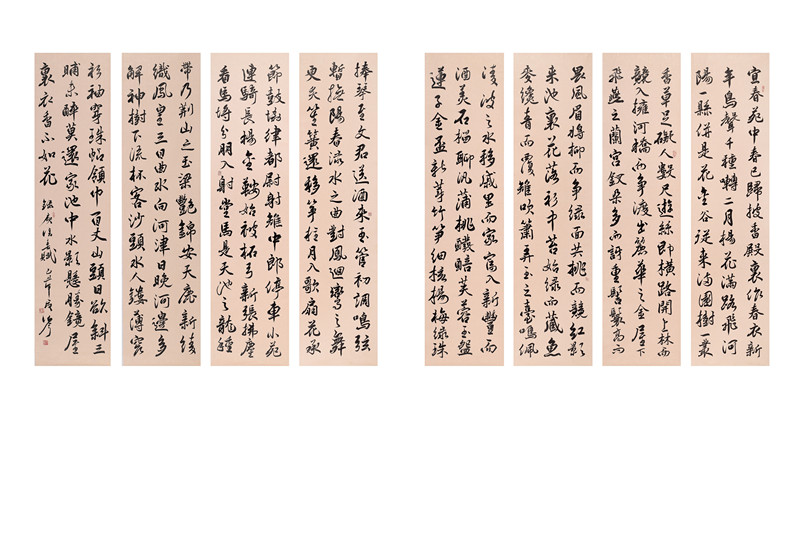 宜春苑中春已歸披香殿裏作春衣新
年鳥聲千種囀二月楊花滿路飛河
陽一縣併是花金谷從來滿園樹一叢
香草足礙人數尺遊絲即橫路開上林而
競入擁河橋而爭渡出麗華之金屋下
飛燕之蘭宮釵朵多而訝重髻鬟高而
畏風眉將柳而爭綠面共桃而競紅影
來池裏花落衫中苔始綠而藏魚
麥纔青而覆雉吹簫弄玉之臺鳴佩
淩波之水移戚里而家富入新豐而
酒美石榴聊汎蒲桃醱醅芙蓉玉盌
蓮子金盃新芽竹筍細核楊梅綠珠
捧琴至文君送酒來玉管初調鳴弦
暫撫陽春淥水之曲對鳳迴鸞之舞
更炙笙簧還移箏柱月入歌扇花承
節鼓協律都尉射雉中郎停車小苑
連騎長楊金鞍始被拓弓新張拂塵
看馬埒分朋入射堂馬是天池之龍種
帶乃荊山之玉梁艷錦安天鹿新綾
織鳳皇三日曲水向河津日晚河邊多
解神樹下流杯客沙頭水人鏤薄窄
衫袖穿珠帖領巾百丈山頭日欲斜三
晡未醉莫還家池中水影懸勝鏡屋
裏衣香不如花 錄庾信春賦